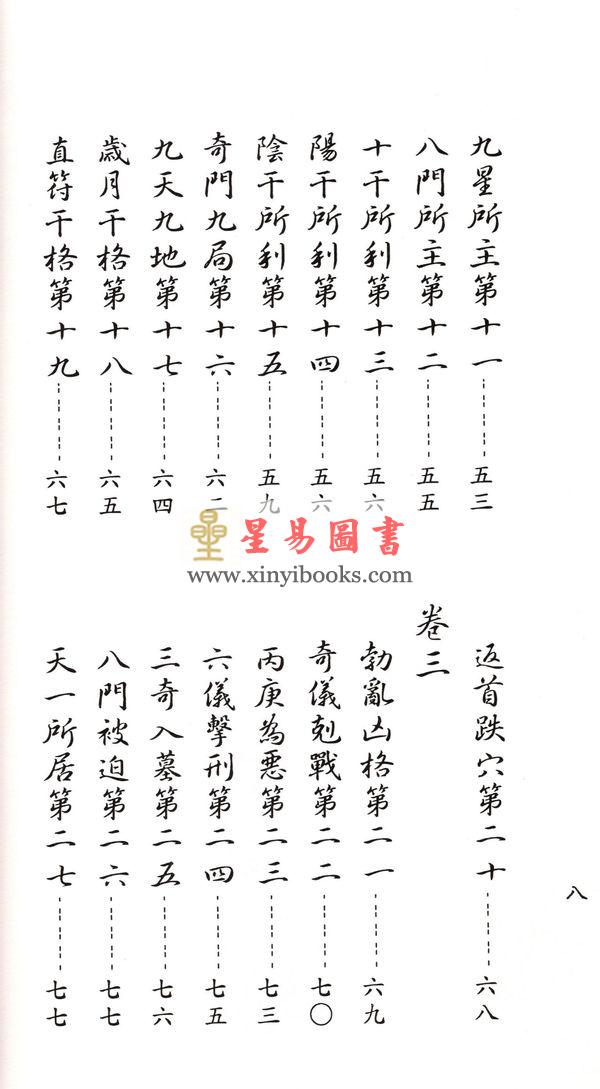 九星所主第十一 五三
八門所主第十二 五五
十干所利第十三 五六
陽干所利第十四 五六
陰干所利第十五 五九
奇門九局第十六 六二
九天九地第十七 六四
歲月干格第十八 六五
直符干格第十九 六七
星易圖書
www.xinyibooks.com
返首跌穴第二十 六八
卷三
勃亂凶格第二一 六九
奇儀剋戰第二二 七〇
丙庚為惡第二三 七三
六儀擊刑第二四 七五
三奇入墓第二五 七六
八門被迫第二六 七七
天一所居第二七 七七
八